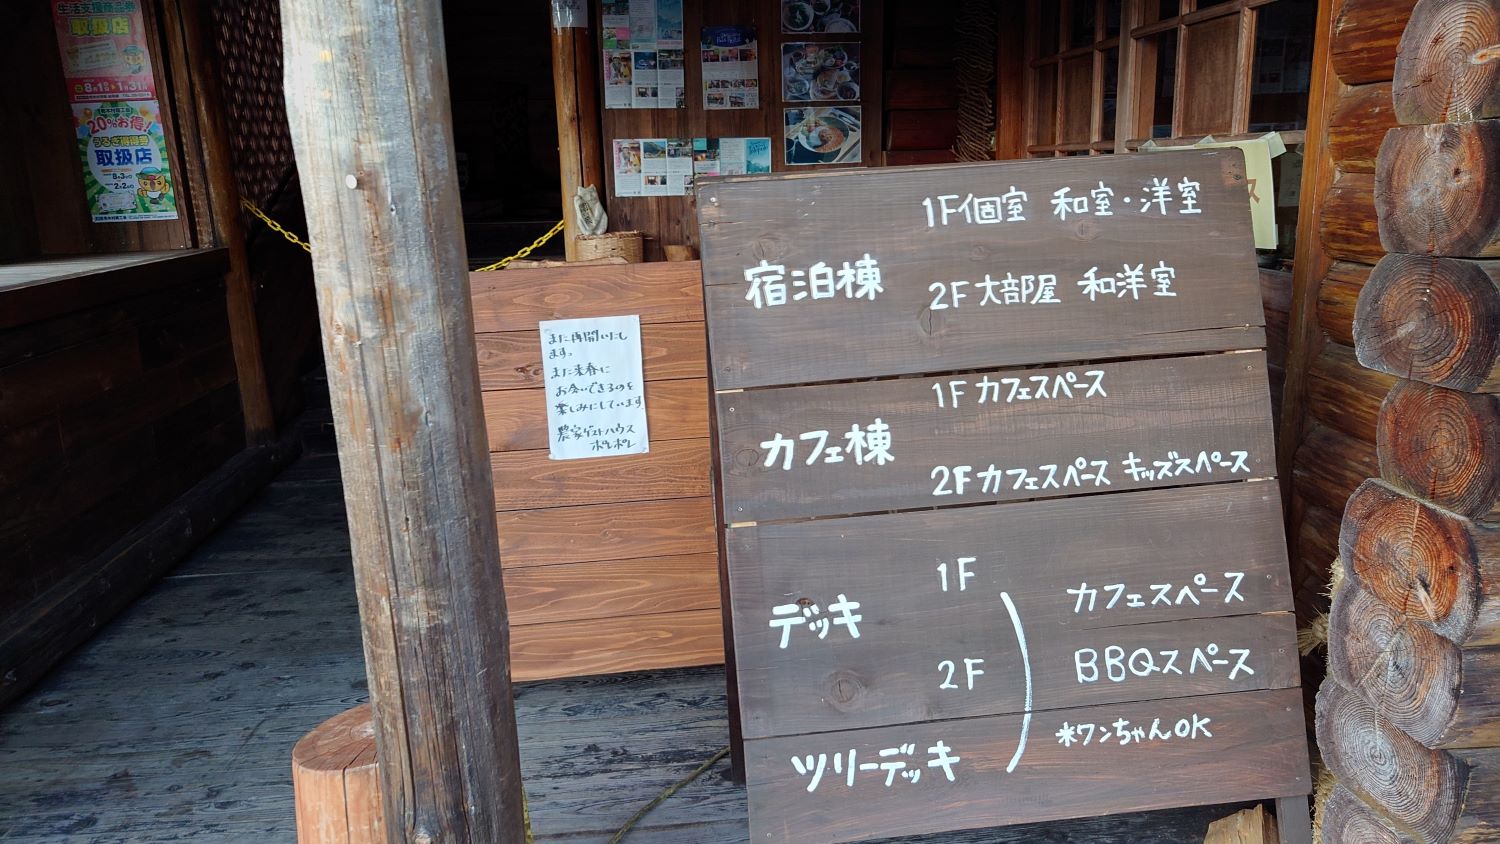 生活支援商品券
取扱店
8月1日 1月31日
20%お得!
うるぎ得得券
取扱店
8月3日
2月2日
また再開いたし
ます。
また来春に
お会いできるのを
楽しみにしています
農家ゲストハウス
ポレポレ
宿泊棟
1F個室 和室・洋室
2F大部屋 和洋室
カフェ棟
1F カフェスペース
2F カフェスペース キッズスペース
デッキ
1F
2F
ツリーデッキ
カフェスペース
BBQスペース
*ワンちゃんOK
ス